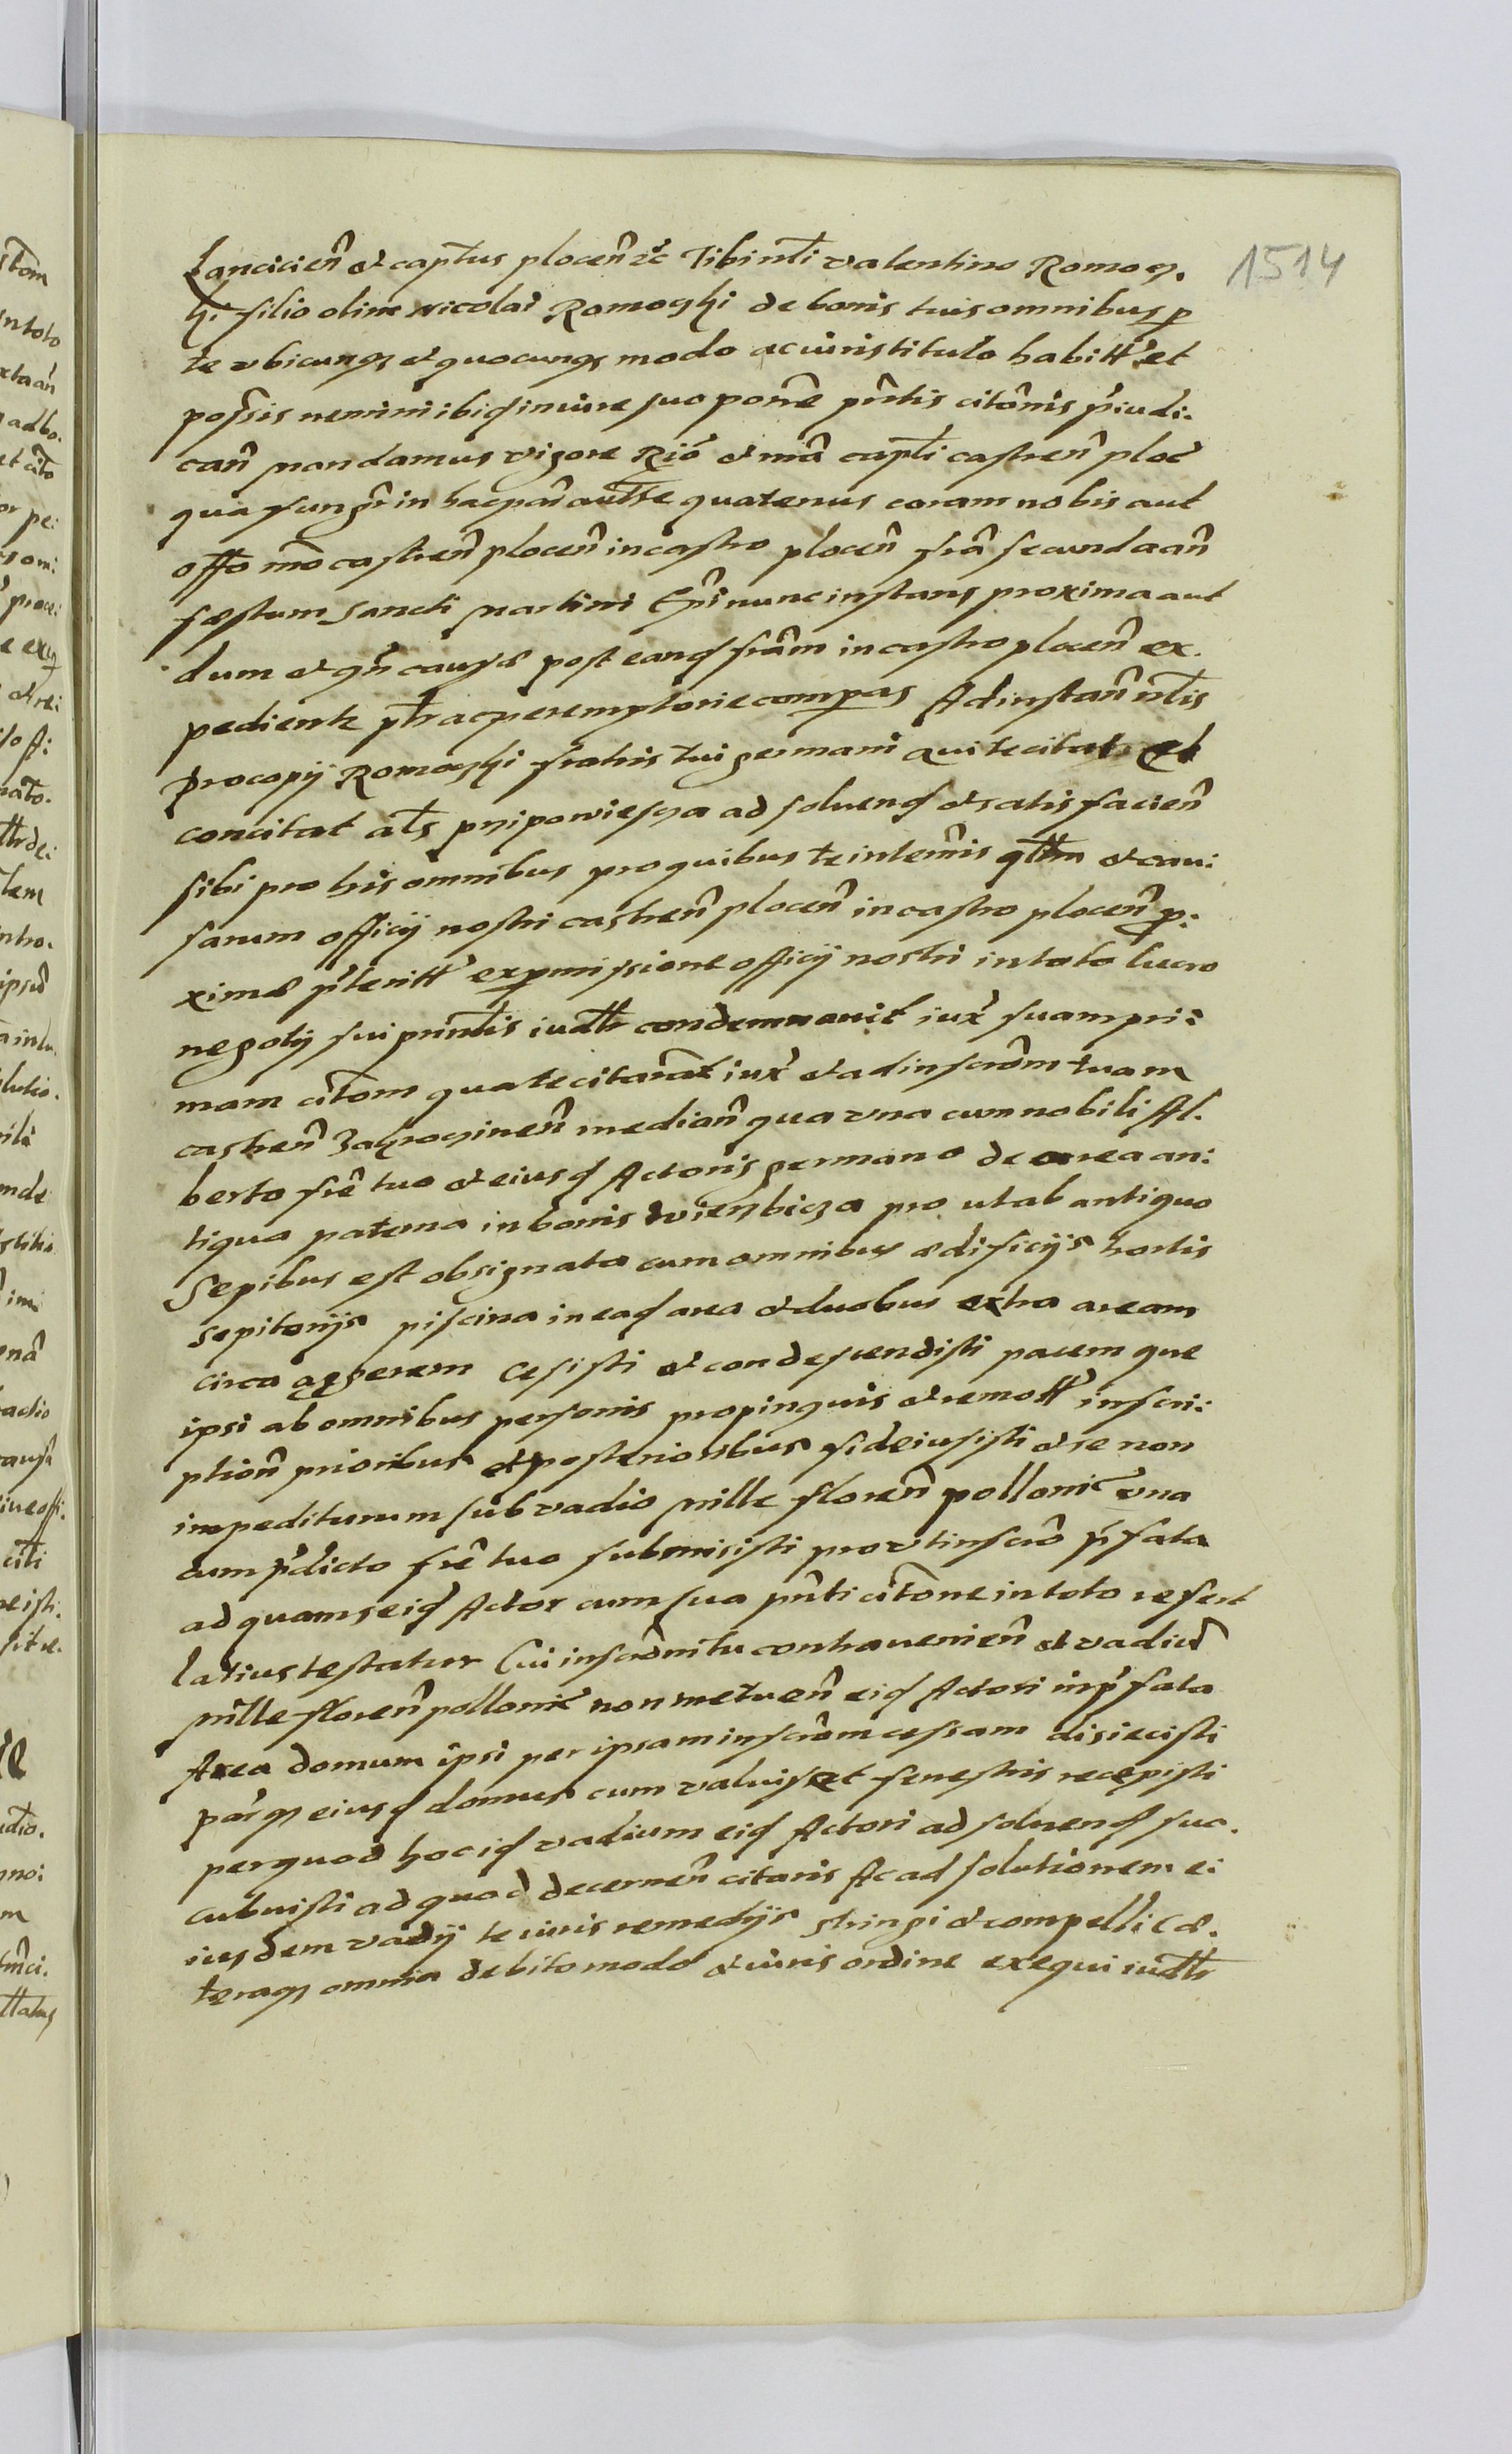 1514
Lancicien̂ et capt̃us plocen̂ &c̃ Tibi nt̃i Valentino Romoc,
ki filio olim Nicolai Romoczki de bonis tuis omnibus p
te vbicunq, et quocunq, modo ac iuris titulo habitt̃ et
posŝis nemini ibiq̃ in iure suo ponê pn̂tis citôms p̃iudi:
can̂ mandamus vigore Rîo et mâ capt̃i castren̂ ploc̃
qua fungr̃ in hac par̃ autt̃e quatenus coram nobis aut
offo nr̃o castren̂ plocen̂ in castro plocen̂ fr̂a secunda an̂
festum Sancti Martini Ep̂i nunc instans proxima aut
dum et qn̂ causæ post eanq̃ fr̂am in castro plocen̂ ex.
pedientr pt̃r ac peremptorie compas Ad instan̂ nt̃is
Procopij Romoczki fratris tui germani qui te citat et
concitat at̃s przipowiescza ad soluenq̃ et satisfacien̂
sibi pro his omnibus pro quibus te in tem̂is qtt̃m et cau:
sarum officij nostri castren̂ plocen̂ in castro plocen̂ p:
ximæ p̃teritt̃ ex pmissione officij nostri in toto lucro
negotij sui prinnt̃is iudtr̃ condemnauit iux̃ suam pri:
mam cit̃om qua te citarat iux̃ et ad inscrôm tuam
castren̂ Zakroczinen̂ median̂ qua vna cum nobili Al.
berto frê tuo et eiusq̃ Actoris germano de area an:
tiqua paterna in bonis Wierzbicza pro ut ab antiquo
Sepibus est obsignata cum omnibus ædificijs hortis
sepitorijs piscina in eaq̃ area et duabus extra aream
circa aggerem Cesisti et condescendisti pacem que
ipsi ab omnibus personis propinquis et remott̃ inscri:
ption̂ prioribus et posterioribus fideiusisti et se non
impediturum sub vadio Mille floren̂ pollonic̃ vna
cum p̃dicto frê tuo submisisti prout inscrô p̃fata
ad quam se iq̃ Actor cum sua pn̂ti cit̃one in toto refert
latius testatur Cui inscrôni tu contrauenien̂ et vadiũ
Mille floren̂ pollonic̃ non metuen̂ eiq̃ Actori in p̃fata
Area domum ipsi per ipsam inscrôm cessam disiecisti
par̃q, eiusq̃ domus cum valuis et fenestris recepisti
per quod hoc iq̃ vadium eiq̃ Actori ad soluenq̃ suc.
cubuisti ad quod decernen̂ citaris Ac ad solutionem ei
iusdem vadij te iuris remedijs stringi et compelli Cæ.
teraq, omnia debito modo et iuris ordine exequi iudtr̃